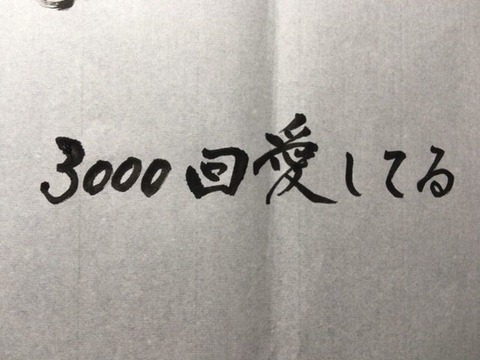 3000回愛してる